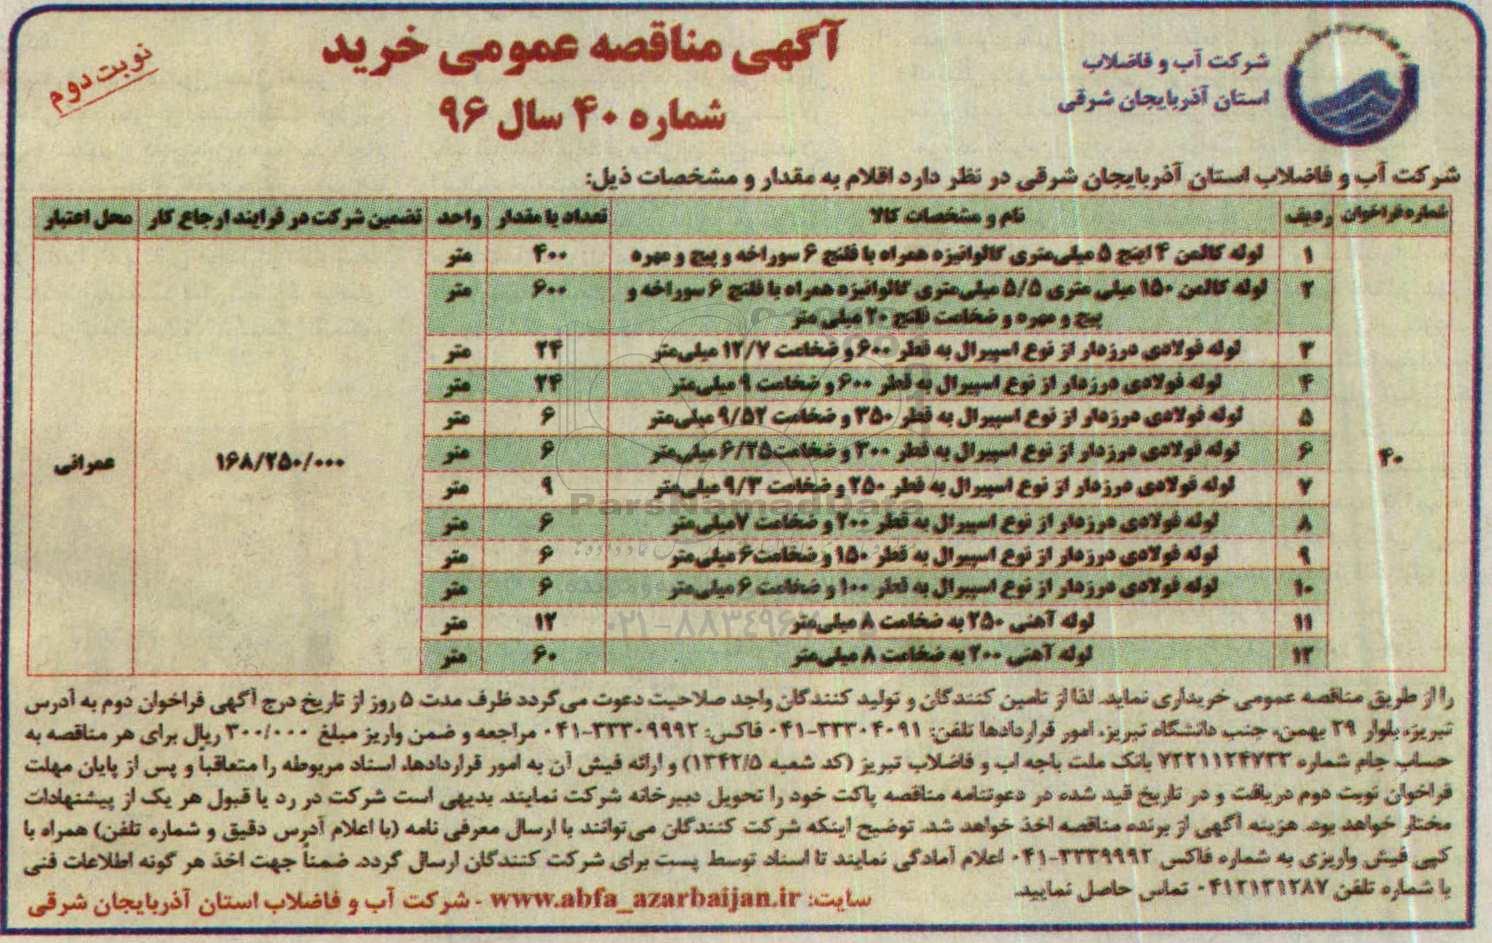 شرکت آب و فاضلاب
استان آذربایجان شرقی
آگهی مناقصه عمومی خرید
شماره ۴۰ سال ۹۶
نوبت دوم
شرکت آب و فاضلاب استان آذربایجان شرقی در نظر دارد اقلام به مقدار و مشخصات ذیل:
شماره فراخوان ردیف نام و مشخصات کالا تعداد یا مقدار واحد تضمین شرکت در فرایند ارجاع کار محل اعتبار
۱ لوله کالمن ۴ اینچ ۵ میلی‌متری گالوانیزه همراه با فلنج ۶ سوراخه و پیچ و مهره ۴۰۰ متر
۲ لوله کالمن ۱۵۰ میلی متری ۵/۵ میلی‌متری گالوانیزه همراه با فلنج ۶ سوراخه و ۶۰۰ متر
پیچ و مهره و ضخامت فلنج ۲۰ میلی متر
۳ لوله فولادی درزدار از نوع اسپیرال به قطر ۶۰۰ و ضخامت ۱۲/۷ میلی‌متر ۲۴ متر
۴ لوله فولادی درزدار از نوع اسپیرال به قطر ۶۰۰ و ضخامت ۹ میلی‌متر ۲۴ متر
۵ لوله فولادی درزدار از نوع اسپیرال به قطر ۳۵۰ و ضخامت ۹/۵۲ میلی‌متر ۶ متر
۴۰ ۶ لوله فولادی درزدار از نوع اسپیرال به قطر ۳۰۰ و ضخامت ۶/۳۵ میلی‌متر ۶ متر ۱۶۸/۲۵۰/۰۰۰ عمرانی
۷ لوله فولادی درزدار از نوع اسپیرال به قطر ۲۵۰ و ضخامت ۹/۳ میلی‌متر ۹ متر
۸ لوله فولادی درزدار از نوع اسپیرال به قطر ۲۰۰ و ضخامت ۷ میلی‌متر ۶ متر
۹ لوله فولادی درزدار از نوع اسپیرال به قطر ۱۵۰ و ضخامت ۶ میلی‌متر ۶ متر
۱۰ لوله فولادی درزدار از نوع اسپیرال به قطر ۱۰۰ و ضخامت ۶ میلی‌متر ۶ متر
۱۱ لوله آهنی ۲۵۰ به ضخامت ۸ میلی‌متر ۱۲ متر
۱۲ لوله آهنی ۲۰۰ به ضخامت ۸ میلی‌متر ۶۰ متر
ParsNamadData
را از طریق مناقصه عمومی خریداری نماید. لذا از تامین کنندگان و تولید کنندگان واجد صلاحیت دعوت می‌گردد ظرف مدت ۵ روز از تاریخ درج آگهی فراخوان دوم به آدرس
تبریز، بلوار ۲۹ بهمن، جنب دانشگاه تبریز، امور قراردادها تلفن: ۳۳۳۰۴۰۹۱-۰۴۱ فاکس: ۳۳۳۰۹۹۹۲-۰۴۱ مراجعه و ضمن واریز مبلغ ۳۰۰/۰۰۰ ریال برای هر مناقصه به
حساب جام شماره ۷۲۲۱۱۲۴۷۳۳ بانک ملت باجه آب و فاضلاب تبریز (کد شعبه ۱۳۴۲/۵) و ارائه فیش آن به امور قراردادها، اسناد مربوطه را متعاقباً و پس از پایان مهلت
فراخوان نوبت دوم دریافت و در تاریخ قید شده در دعوتنامه مناقصه پاکت خود را تحویل دبیرخانه شرکت نمایند. بدیهی است شرکت در رد یا قبول هر یک از پیشنهادات
مختار خواهد بود. هزینه آگهی از برنده مناقصه اخذ خواهد شد. توضیح اینکه شرکت کنندگان می‌توانند با ارسال معرفی نامه (با اعلام آدرس دقیق و شماره تلفن) همراه با
کپی فیش واریزی به شماره فاکس ۳۳۳۹۹۹۲-۰۴۱ اعلام آمادگی نمایند تا اسناد توسط پست برای شرکت کنندگان ارسال گردد. ضمناً جهت اخذ هر گونه اطلاعات فنی
با شماره تلفن ۰۴۱۲۱۳۱۲۸۷ تماس حاصل نمایید.
سایت: www.abfa_azarbaijan.ir - شرکت آب و فاضلاب استان آذربایجان شرقی